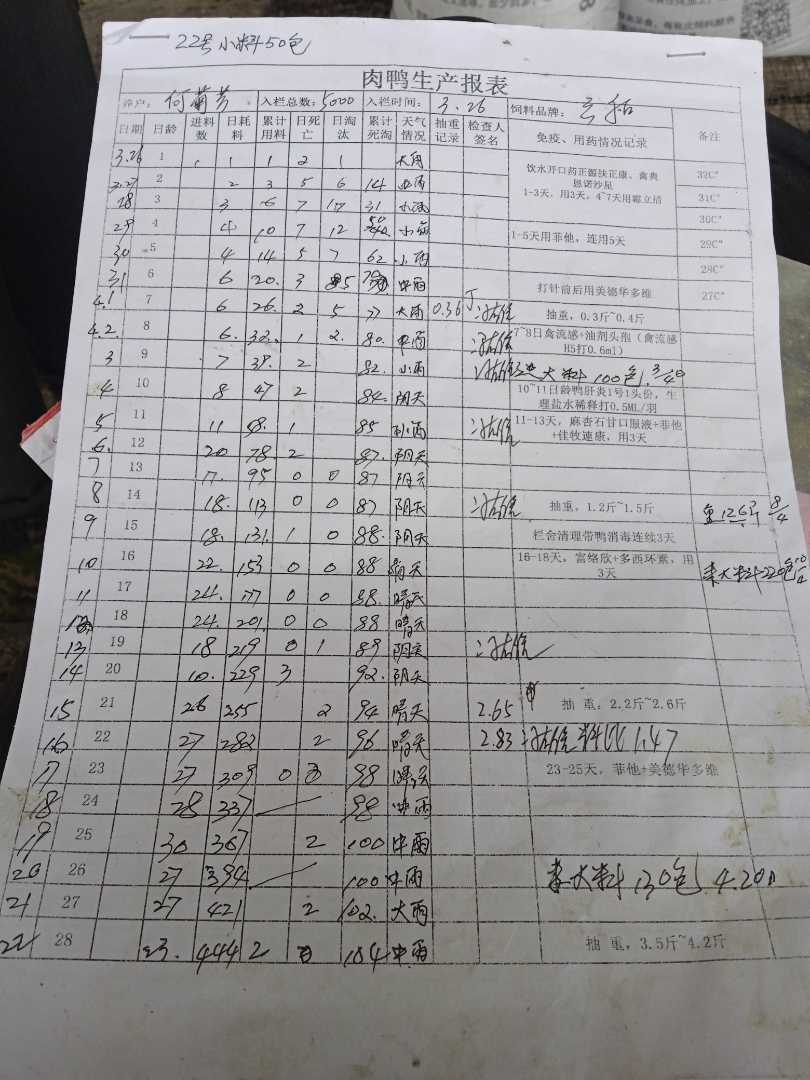 22号小料50包
肉鸭生产报表
养户: 何菊芳 入栏总数: 5000 入栏时间: 3.26 饲料品牌:
日期 日龄 进料数 日耗料 累计用料 日死亡 日淘汰 累计死淘 天气情况 抽重记录 检查人签名 免疫、用药情况记录 备注
3.26 1 1 1 2 1 大雨 饮水开口药正源扶正康、禽典恩诺沙星 32C°
3.27 2 2 3 5 6 14 中雨 1-3天, 用3天, 4~7天用霉立清 31C°
28 3 3 6 7 17 31 小雨 30C°
29 4 4 10 7 12 50 小雨 1-5天用菲他, 连用5天 29C°
30 5 4 14 5 7 62 小雨 28C°
31 6 6 20. 3 5 中雨 打针前后用美德华多维 27C°
4.1 7 6 26. 2 5 77 大雨 0.36 抽重, 0.3斤~0.4斤
4.2. 8 6. 32. 1 2. 80. 中雨 7~8日禽流感+油剂头孢(禽流感H5打0.6ml)
3 9 7 39. 2 82. 小雨 大料100包.
4 10 8 47 2 84. 阴天 10~11日龄鸭肝炎1号1头份, 生理盐水稀释打0.5ML/羽
5 11 11 58. 1 85 小雨 11-13天, 麻杏石甘口服液+菲他+佳牧速康, 用3天
6. 12 20 78 2 87. 阴天
7 13 17. 95 0 0 87 阴天
8 14 18. 113 0 0 87 阴天 抽重, 1.2斤~1.5斤
9 15 18. 131. 1 0 88. 阴天 栏舍清理带鸭消毒连续3天
10 16 22. 153 0 0 88 晴天 16-18天, 富络欣+多西环素, 用3天 来大料220包
11 17 24. 177 0 0 88. 晴天
12 18 24. 201. 0 0 88 晴天
13 19 18 219 0 1 89 阴天
14 20 10. 229 3 92. 阴天
15 21 26 255 2 94 晴天 2.65 抽 重: 2.2斤~2.6斤
16. 22 27 282 2 96 晴天 2.83 料比 1.47
17 23 27 309 0 98 23-25天, 菲他+美德华多维
18 24 28 337 98 中雨
19 25 30 367 2 100 中雨
20 26 27 394 100 中雨 来大料130包 4.20日
21 27 27 421 2 102. 大雨
22 28 23. 444 2 104 中雨 抽 重, 3.5斤~4.2斤